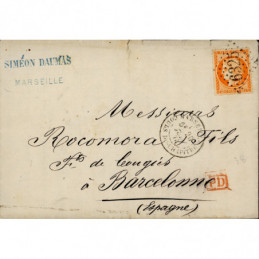 SIMÉON DAUMAS
MARSEILLE
Messieurs
Rocomora Fils
de
à Barcelonne
(Espagne)
PD